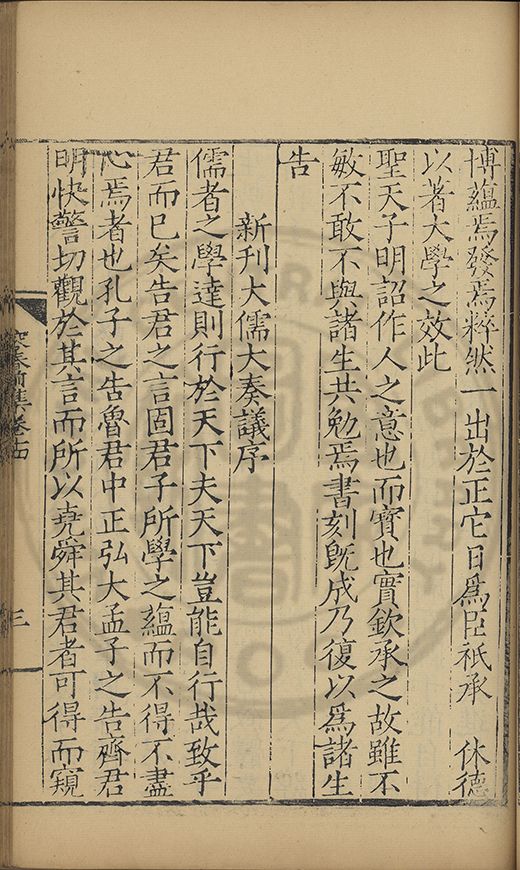 博蘊焉發焉粹然一出於正它日爲臣祇承　休德
以著大學之效此
聖天子明詔作人之意也而寶也實欽承之故雖不
敏不敢不與諸生共勉焉書刻旣成乃復以爲諸生
告
新刊大儒大奏議序
儒者之學達則行於天下夫天下豈能自行哉致乎
君而已矣告君之言固君子所學之蘊而不得不盡
心焉者也孔子之告魯君中正弘大孟子之告齊君
明快警切觀於其言而所以堯舜其君者可得而窺
容春前集卷十四
三